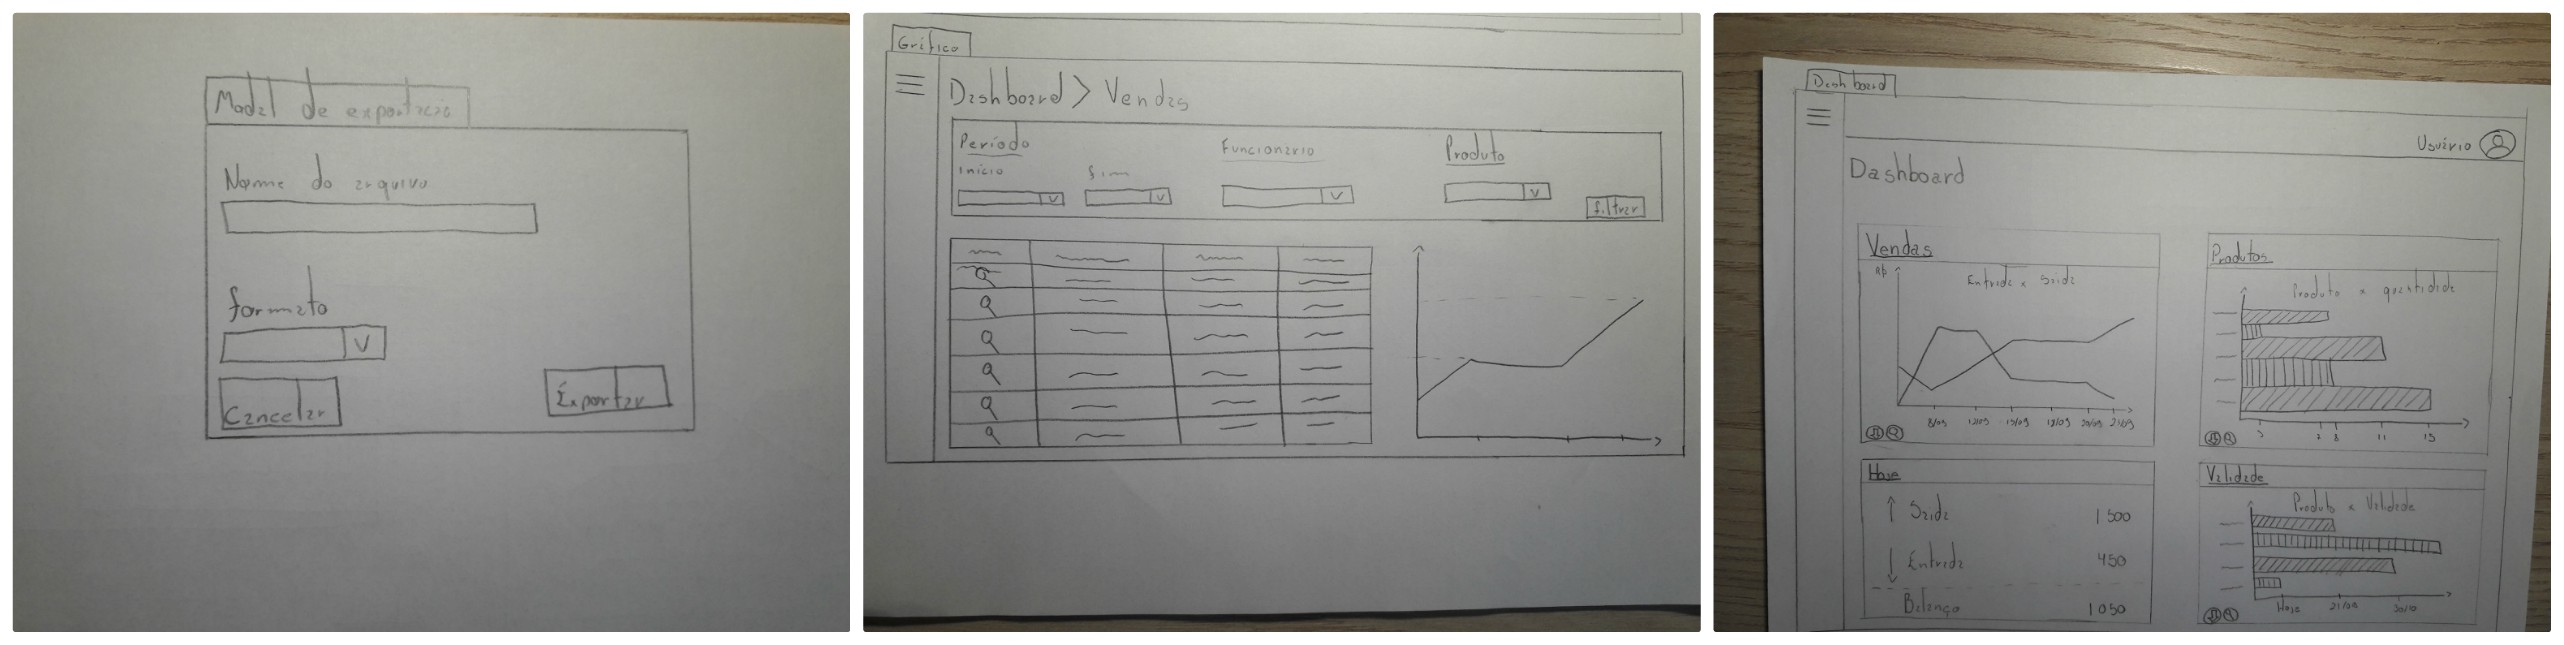 Modal de exportação
Nome do arquivo
formato
V
Cancelar
Exportar
Gráfico
Dashboard > Vendas
Período
Funcionário
Produto
Início
fim
V
V
V
V
filtrar
Dashboard
Usuário
Dashboard
Vendas
Entrada x Saída
8/09
20/09
Produtos
Produto x quantidade
7 8 11 15
Hoje
↑ Saída 1500
↓ Entrada 450
Balanço 1050
Validade
Produto x Validade
Hoje